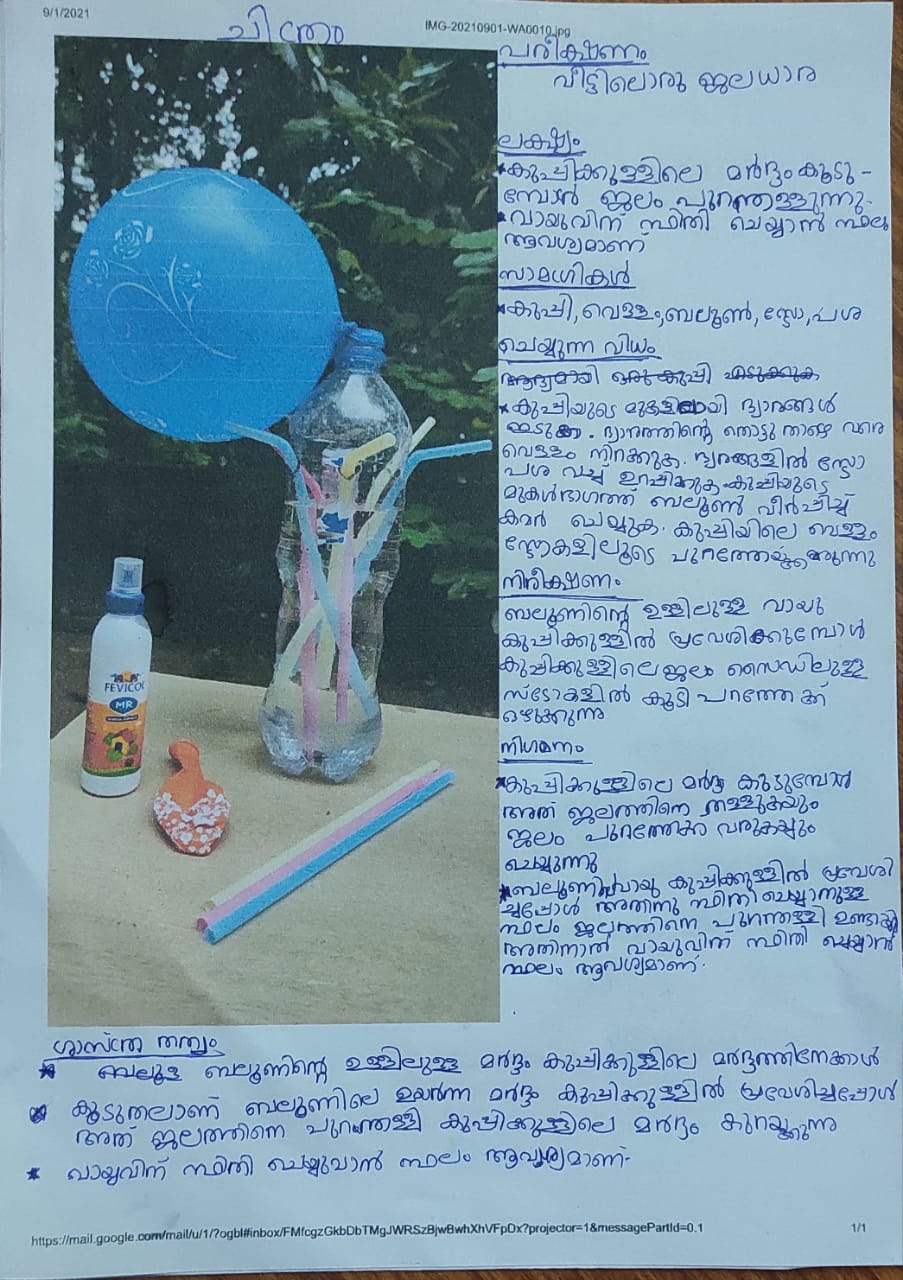 9/1/2021
IMG-20210901-WA0010.jpg
ചിത്രം
പരീക്ഷണം
വീട്ടിലൊരു ജലധാര
ലക്ഷ്യം
*കുപ്പിക്കുള്ളിലെ മർദ്ദം കൂടു-
മ്പോൾ ജലം പുറന്തള്ളുന്നു.
*വായുവിന് സ്ഥിതി ചെയ്യാൻ സ്ഥലം
ആവശ്യമാണ്
സാമഗ്രികൾ
*കുപ്പി, വെള്ളം, ബലൂൺ, സ്ട്രോ, പശ
ചെയ്യുന്ന വിധം
ആദ്യമായി ഒരു കുപ്പി എടുക്കുക
*കുപ്പിയുടെ മുകളിലായി ദ്വാരങ്ങൾ
ഇടുക. ദ്വാരത്തിന്റെ തൊട്ടു താഴെ വരെ
വെള്ളം നിറക്കുക. ദ്വാരങ്ങളിൽ സ്ട്രോ
പശ വച്ച് ഉറപ്പിക്കുക കുപ്പിയുടെ
മുകൾഭാഗത്ത് ബലൂൺ വീർപ്പിച്ച്
കവർ ചെയ്യുക. കുപ്പിയിലെ വെള്ളം
സ്ട്രോകളിലൂടെ പുറത്തേയ്ക്കു വരുന്നു
നിരീക്ഷണം
ബലൂണിന്റെ ഉള്ളിലുള്ള വായു
കുപ്പിക്കുള്ളിൽ പ്രവേശിക്കുമ്പോൾ
കുപ്പിക്കുള്ളിലെ ജലം സൈഡിലുള്ള
സ്ട്രോകളിൽ കൂടി പുറത്തേക്ക്
ഒഴുക്കുന്നു
FEVICOL
MR
നിഗമനം
*കുപ്പിക്കുള്ളിലെ മർദ്ദം കൂടുമ്പോൾ
അത് ജലത്തിനെ തള്ളുകയും
ജലം പുറത്തേക്ക് വരുകയും
ചെയ്യുന്നു
*ബലൂണിലെ വായു കുപ്പിക്കുള്ളിൽ പ്രവേശി
ച്ചപ്പോൾ അതിനു സ്ഥിതി ചെയ്യാനുള്ള
സ്ഥലം ജലത്തിനെ പുറന്തള്ളി ഉണ്ടാക്കി
അതിനാൽ വായുവിന് സ്ഥിതി ചെയ്യാൻ
സ്ഥലം ആവശ്യമാണ്.
ശാസ്ത്ര തത്വം
* ബലൂണിന്റെ ഉള്ളിലുള്ള മർദ്ദം കുപ്പിക്കുള്ളിലെ മർദ്ദത്തിനേക്കാൾ
കൂടുതലാണ് ബലൂണിലെ ഉയർന്ന മർദ്ദം കുപ്പിക്കുള്ളിൽ പ്രവേശിച്ചപ്പോൾ
അത് ജലത്തിനെ പുറന്തള്ളി കുപ്പിക്കുള്ളിലെ മർദ്ദം കുറയ്ക്കുന്നു
* വായുവിന് സ്ഥിതി ചെയ്യുവാൻ സ്ഥലം ആവശ്യമാണ്.
https://mail.google.com/mail/u/1/?ogbl#inbox/FMfcgzGkbDbTMgJWRSzBjwBwhXhVFpDx?projector=1&messagePartId=0.1
1/1